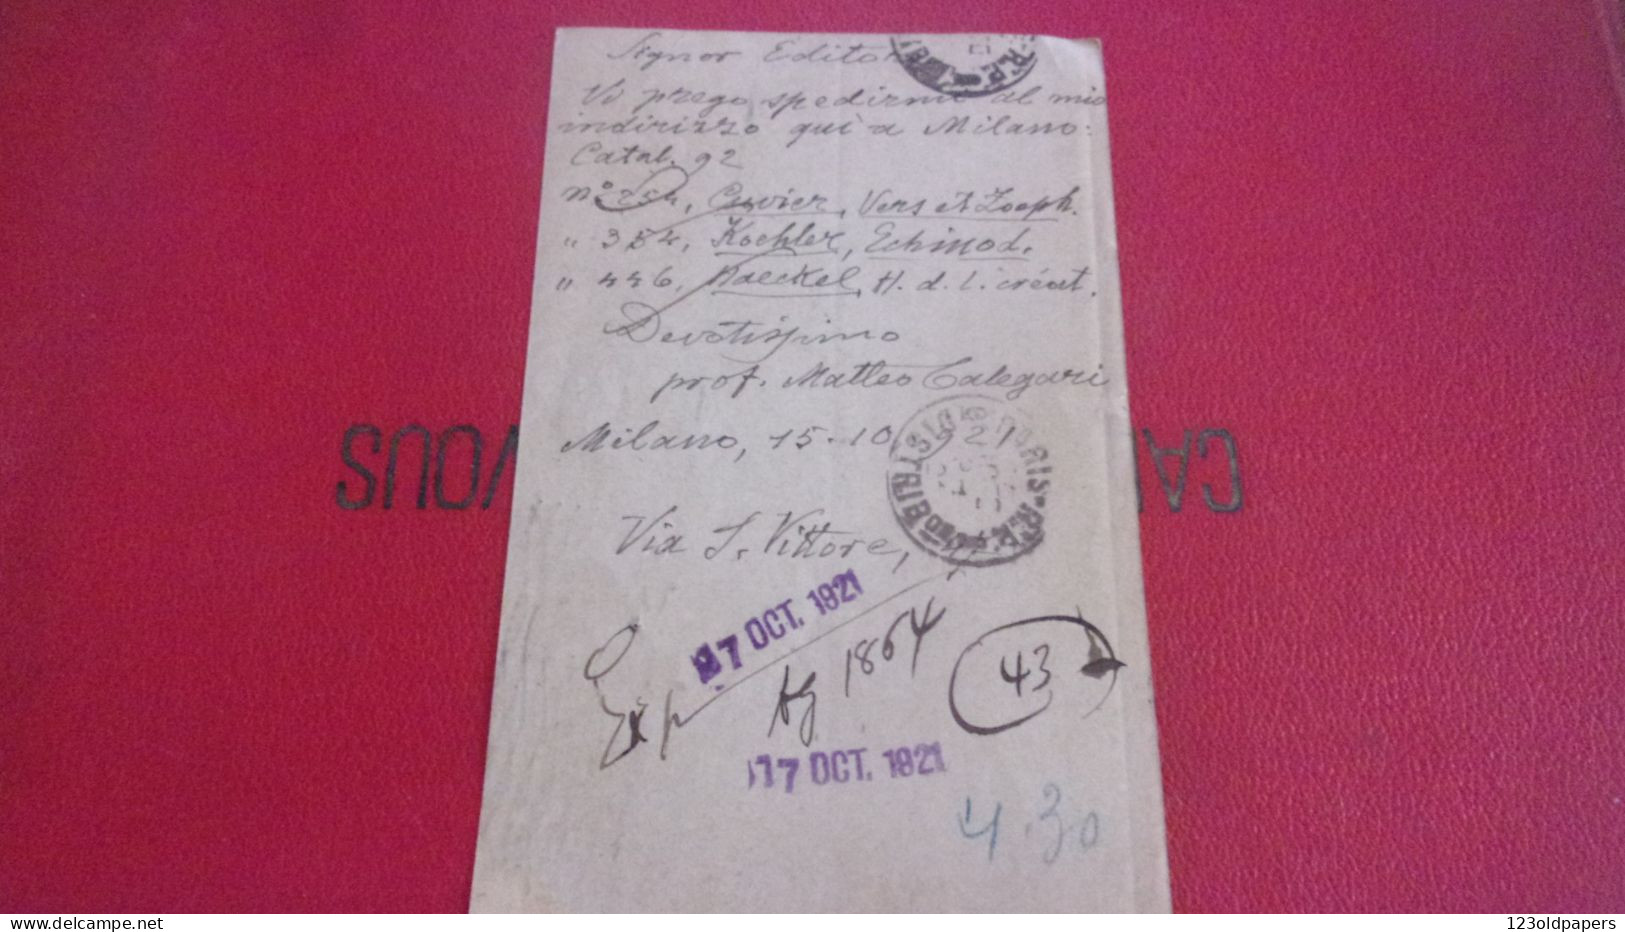 Signor Editor
Vi prego spedirmi al mio
indirizzo qui a Milano:
Catal. 92
N° 254, Cuvier, Vers et Zooph.
" 354, Koehler, Echinod.
" 446, Haeckel, H. d. l. créat.
Devotissimo
prof. Matteo Calegari
Milano, 15-10 921
PARIS R.P.
DISTRIBUTION
Via S. Vittore,
27 OCT. 1921
Exp
1864
43
17 OCT. 1921
4.30
VOUS
CA
www.delcampe.net
123oldpapers